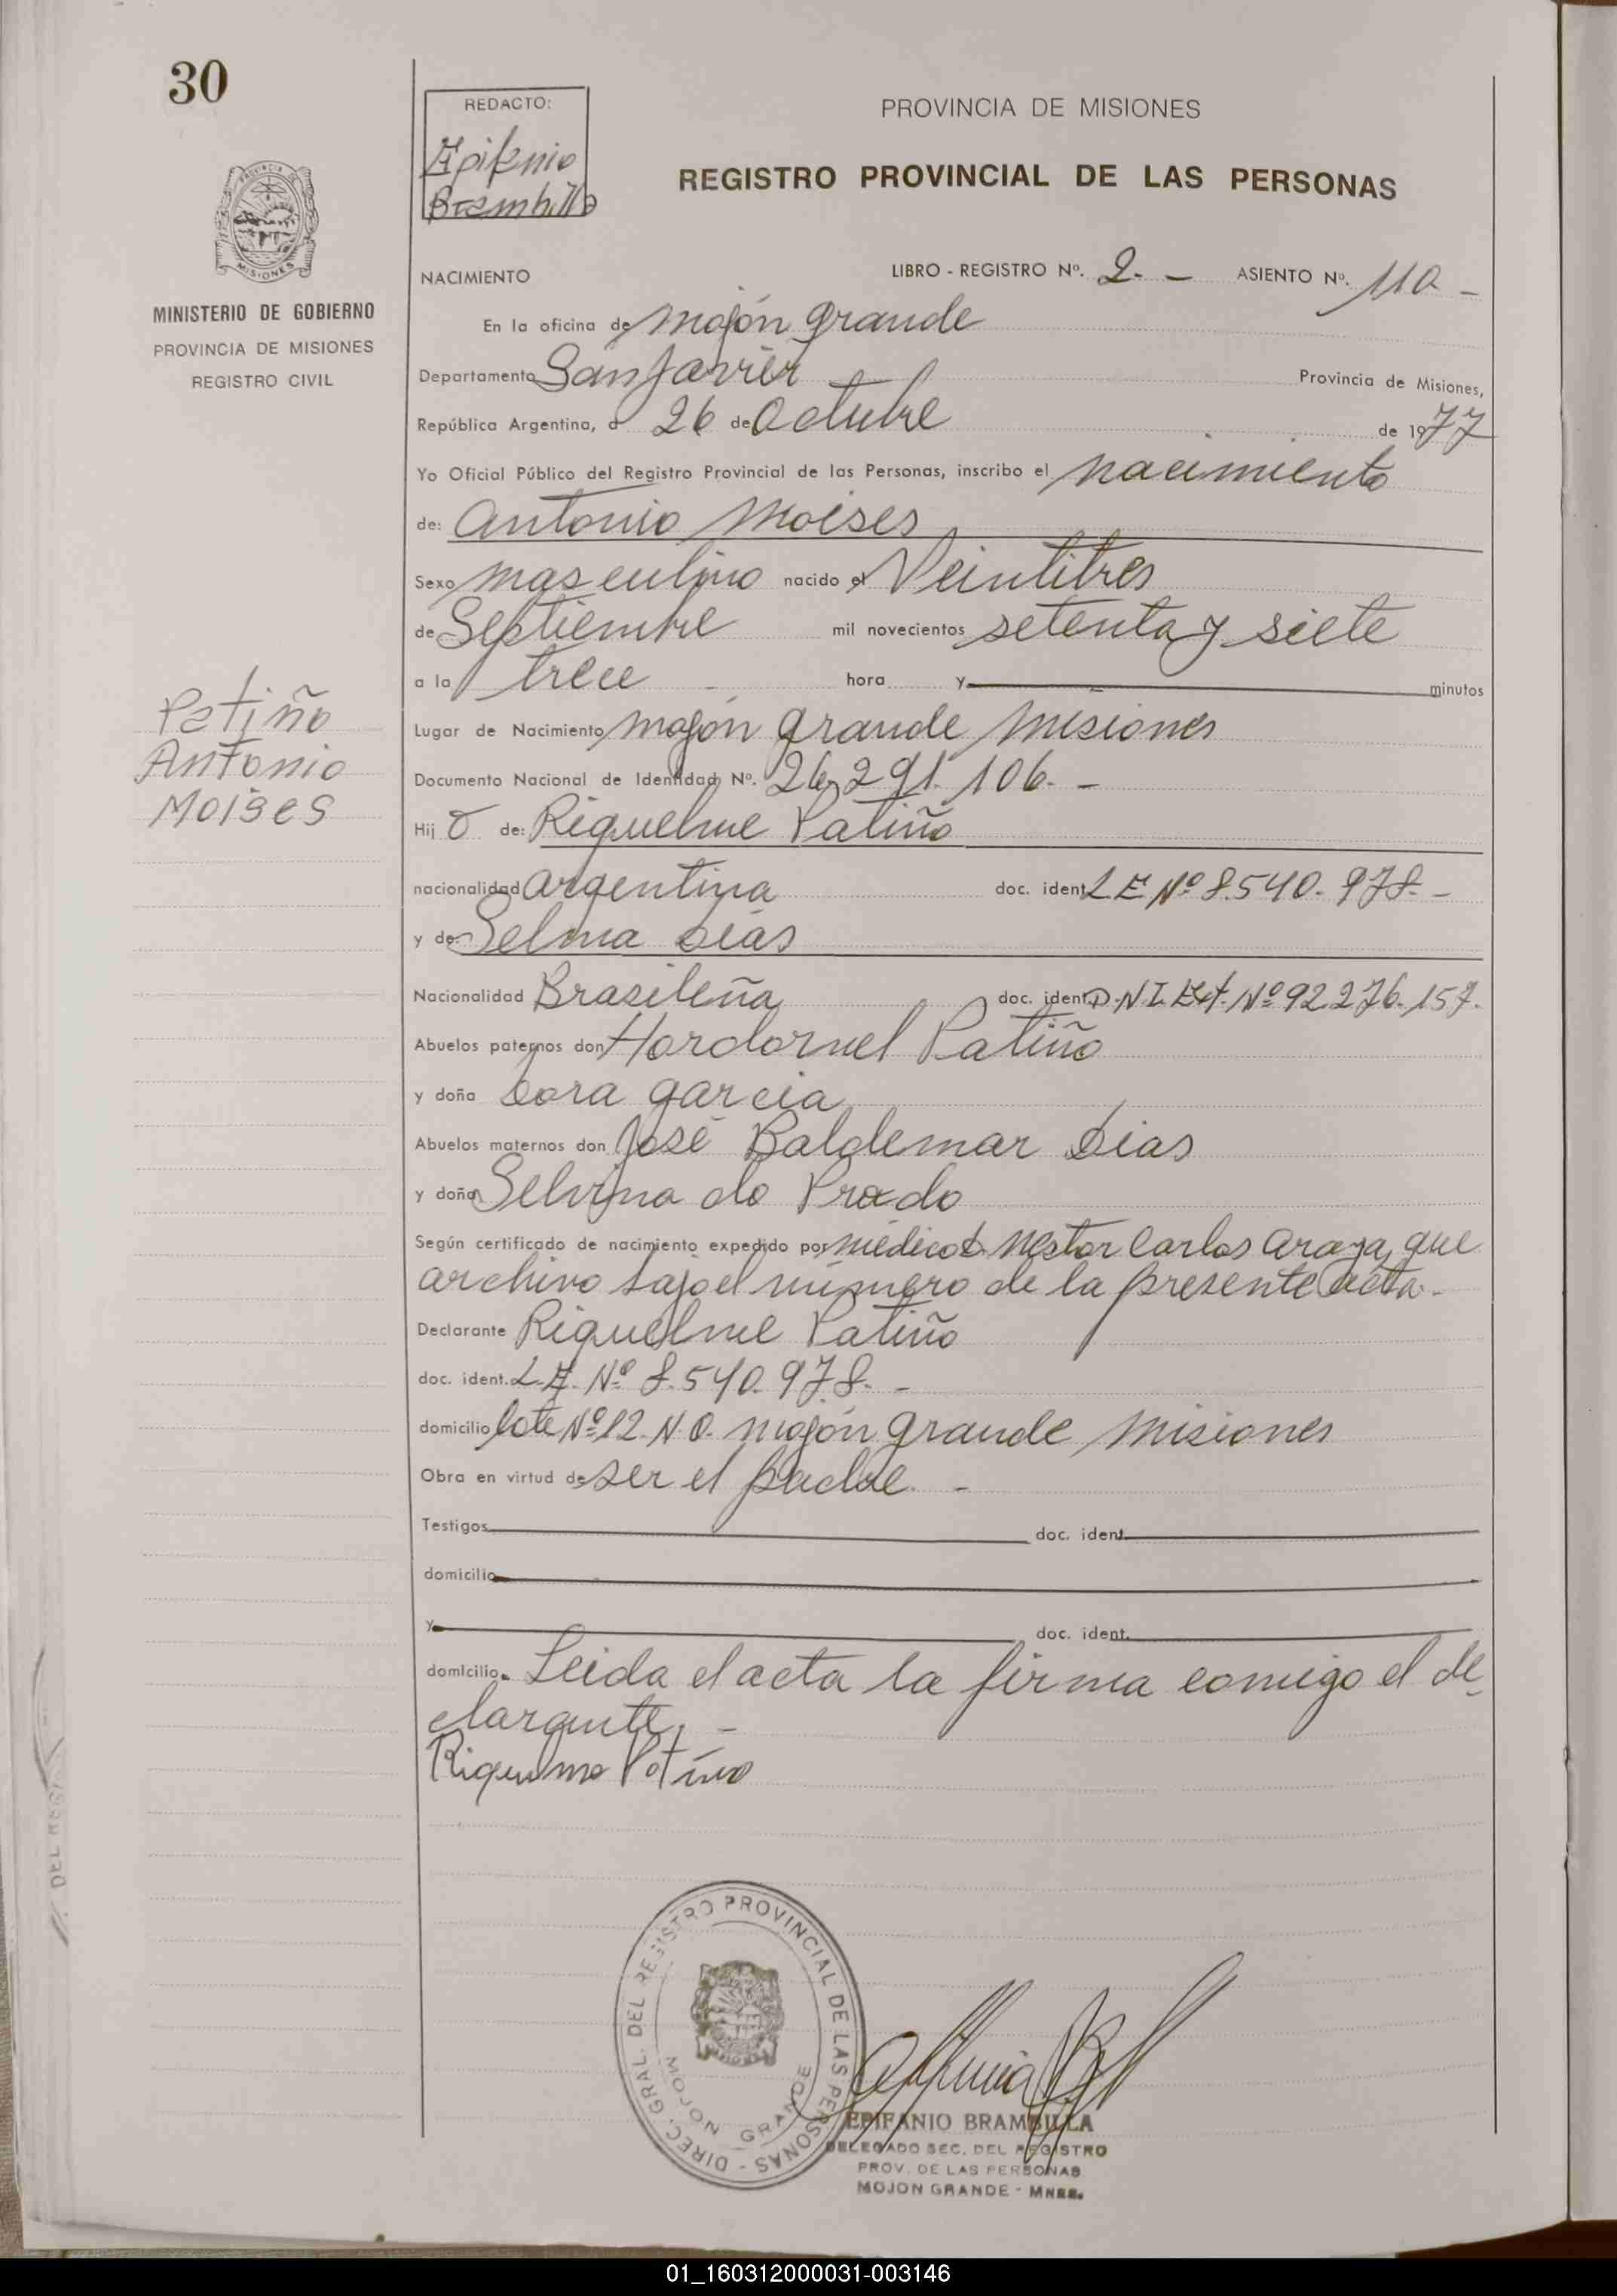 30
REDACTO:
Epifanio
Brambilla
PROVINCIA DE MISIONES
REGISTRO PROVINCIAL DE LAS PERSONAS
PROVINCIA DE
MISIONES
MINISTERIO DE GOBIERNO
PROVINCIA DE MISIONES
REGISTRO CIVIL
NACIMIENTO
LIBRO - REGISTRO Nº. 2. - ASIENTO Nº. 110 -
En la oficina de Mojón grande
Departamento San Javier Provincia de Misiones,
República Argentina, a 26 de Octubre de 1977
Yo Oficial Público del Registro Provincial de las Personas, inscribo el nacimiento
de: Antonio Moises
Sexo masculino nacido el Veintitres
de Septiembre mil novecientos setenta y siete
a la trece hora y minutos
Lugar de Nacimiento Mojón grande Misiones
Documento Nacional de Identidad Nº. 26.291.106. -
Hij o de: Riquelme Patiño
nacionalidad argentina doc. ident. L E Nº 8.540.978. -
y de: Selma Dias
Nacionalidad Brasileña doc. ident. D.N.I. Ext. Nº 92.276.157.
Abuelos paternos don Hordornel Patiño
y doña Dora garcia
Abuelos maternos don José Baldemar Dias
y doña Selvina do Prado
Según certificado de nacimiento expedido por médico D. Nestor Carlos Araza, que
archivo bajo el número de la presente acta. -
Declarante Riquelme Patiño
doc. ident. L.E. Nº 8.540.978. -
domicilio lote Nº 12 N.O. Mojón grande Misiones
Obra en virtud de ser el padre. -
Testigos doc. ident.
domicilio
y doc. ident.
domicilio. Leida el acta la firma comigo el de-
clarante, -
Riquelme Patiño
Patiño
Antonio
Moises
DIREC. GRAL. DEL REGISTRO PROVINCIAL DE LAS PERSONAS -
MOJON GRANDE
EPIFANIO BRAMBILLA
DELEGADO SEC. DEL REGISTRO
PROV. DE LAS PERSONAS
MOJON GRANDE - MNES.
01_160312000031-003146